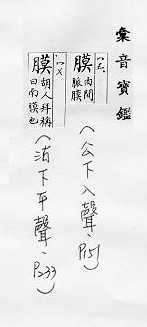 彙音寶鑑
膜
肉間
脈膜
(公下入聲、P151)
膜
胡人拜稱
曰南膜也
(沽下平聲、P233)